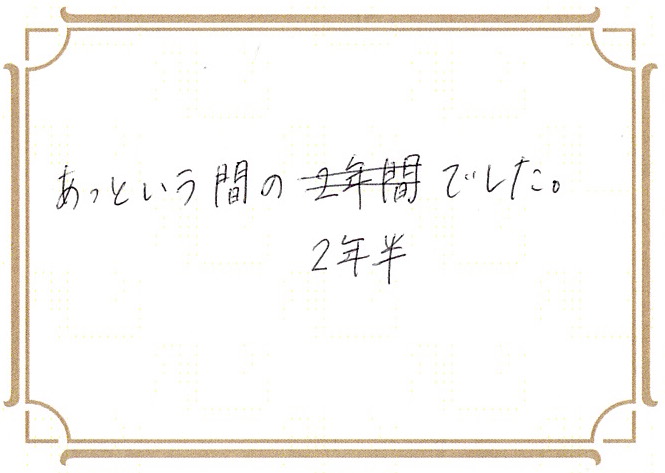 あっという間の2年間でした。
2年半